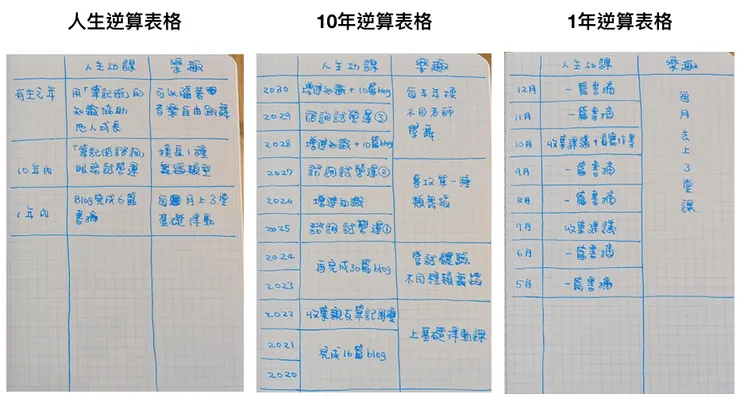 人生逆算表格
10年逆算表格
1年逆算表格
人生功課 樂趣
有生之年
用「筆記術」的
知識協助
他人成長
音樂自由
10年內
「筆記術諮詢」
服務試營運
擅長1種
舞蹈類型
1年內
Blog完成6篇
書摘
每個月上3堂
基礎律動
人生功課 樂趣
2030 增進知識+10篇blog
2029 諮詢試營運③
2028 增進知識+10篇blog
每年換
不同老師
學舞
2027 諮詢試營運②
2026 增進知識
2025 諮詢試營運①
專攻某一種
類舞蹈
2024
2023
再完成30篇blog
嘗試體驗
不同種類舞蹈
2022 收集親友筆記困擾
2021
2020
完成16篇blog
上基礎律動課
人生功課 樂趣
12月 一篇書摘
11月 一篇書摘
10月 收集建議+
9月 一篇書摘
8月 一篇書摘
7月 收集建議
6月 一篇書摘
5月 一篇書摘
每月去上3堂課